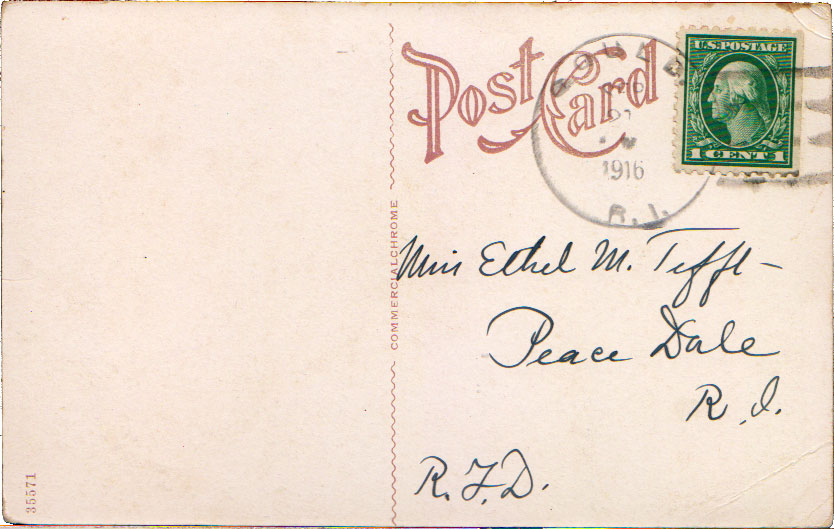 Post Card
U.S. POSTAGE
1 CENT 1
GOULD
1916
R.I.
COMMERCIALCHROME
Miss Ethel M. Tefft
Peace Dale
R.I.
R.F.D.
35571